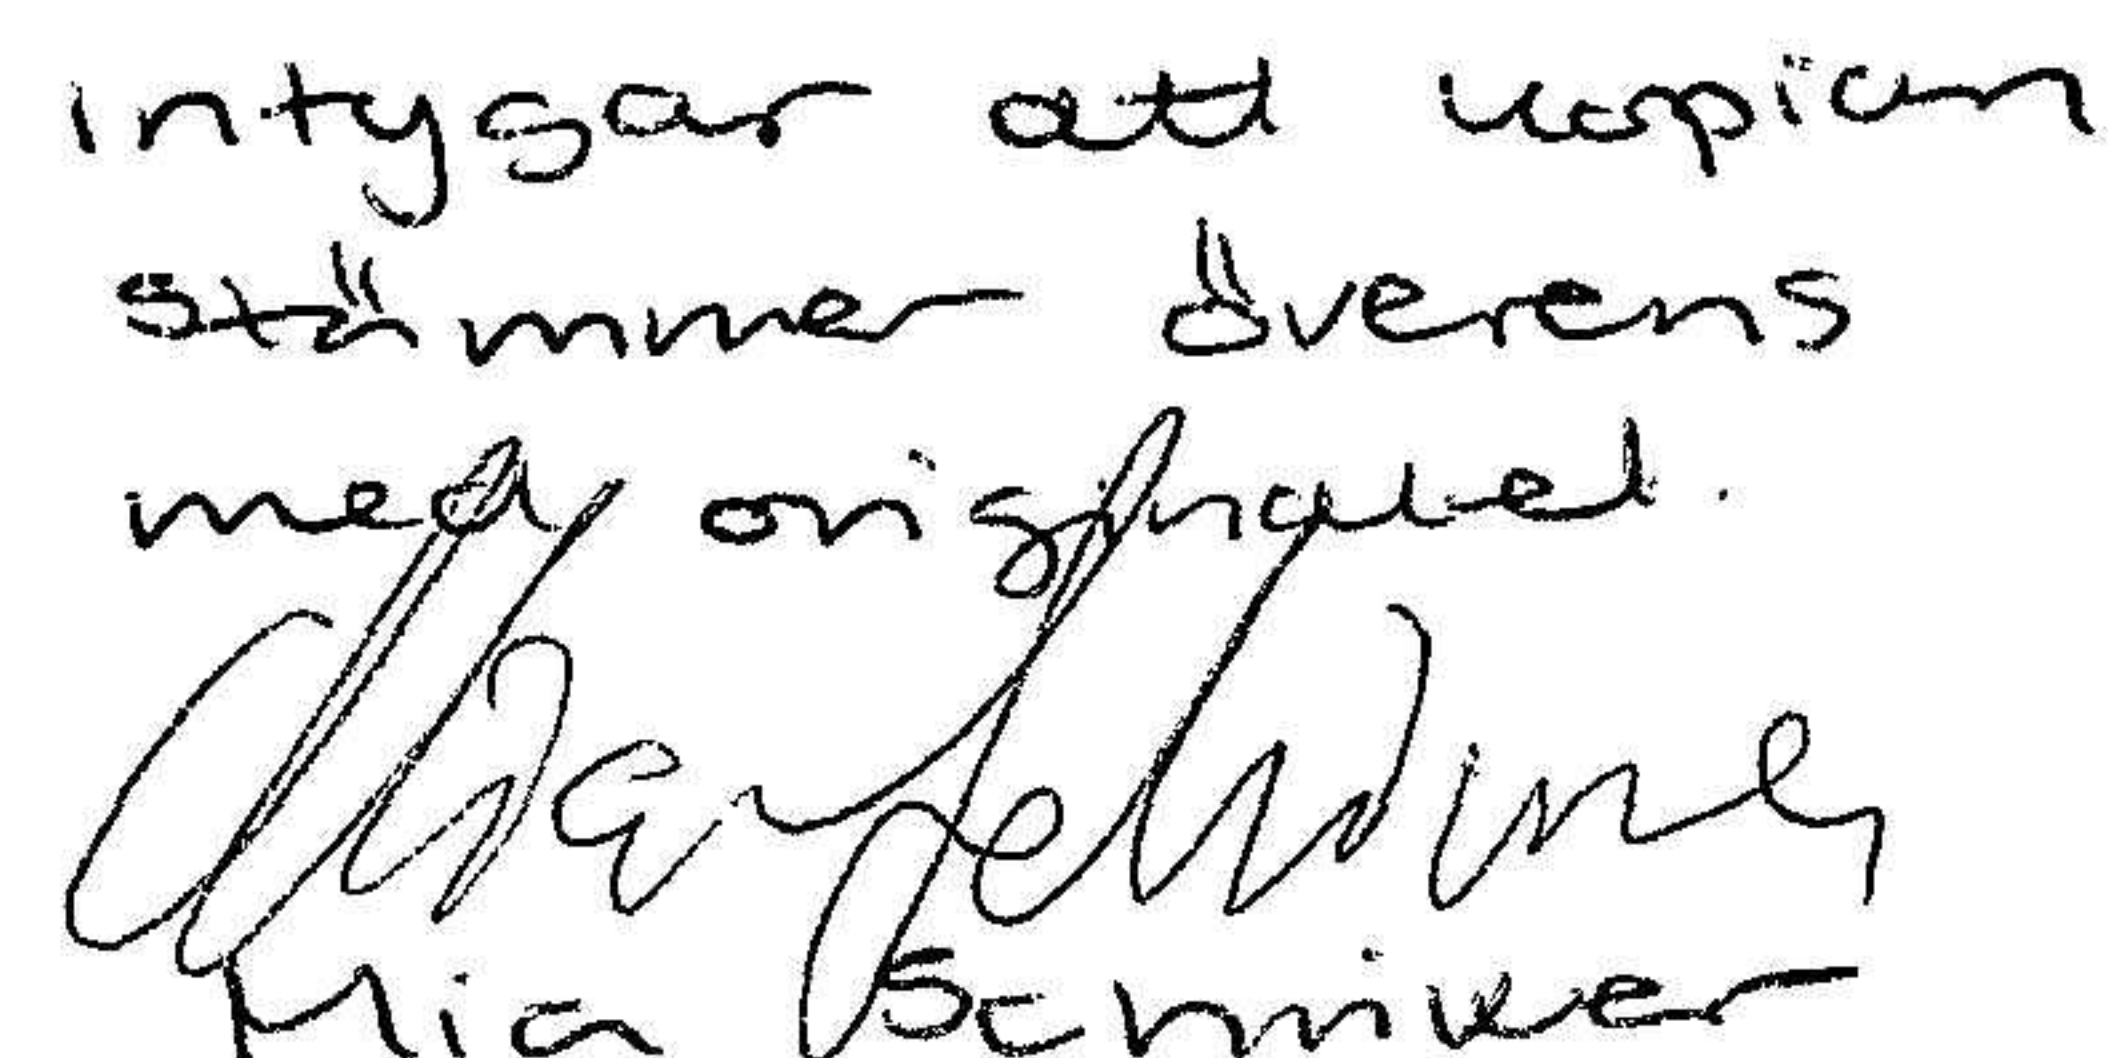 Intygar att kopian
stämmer överens
med originalet.
Mia